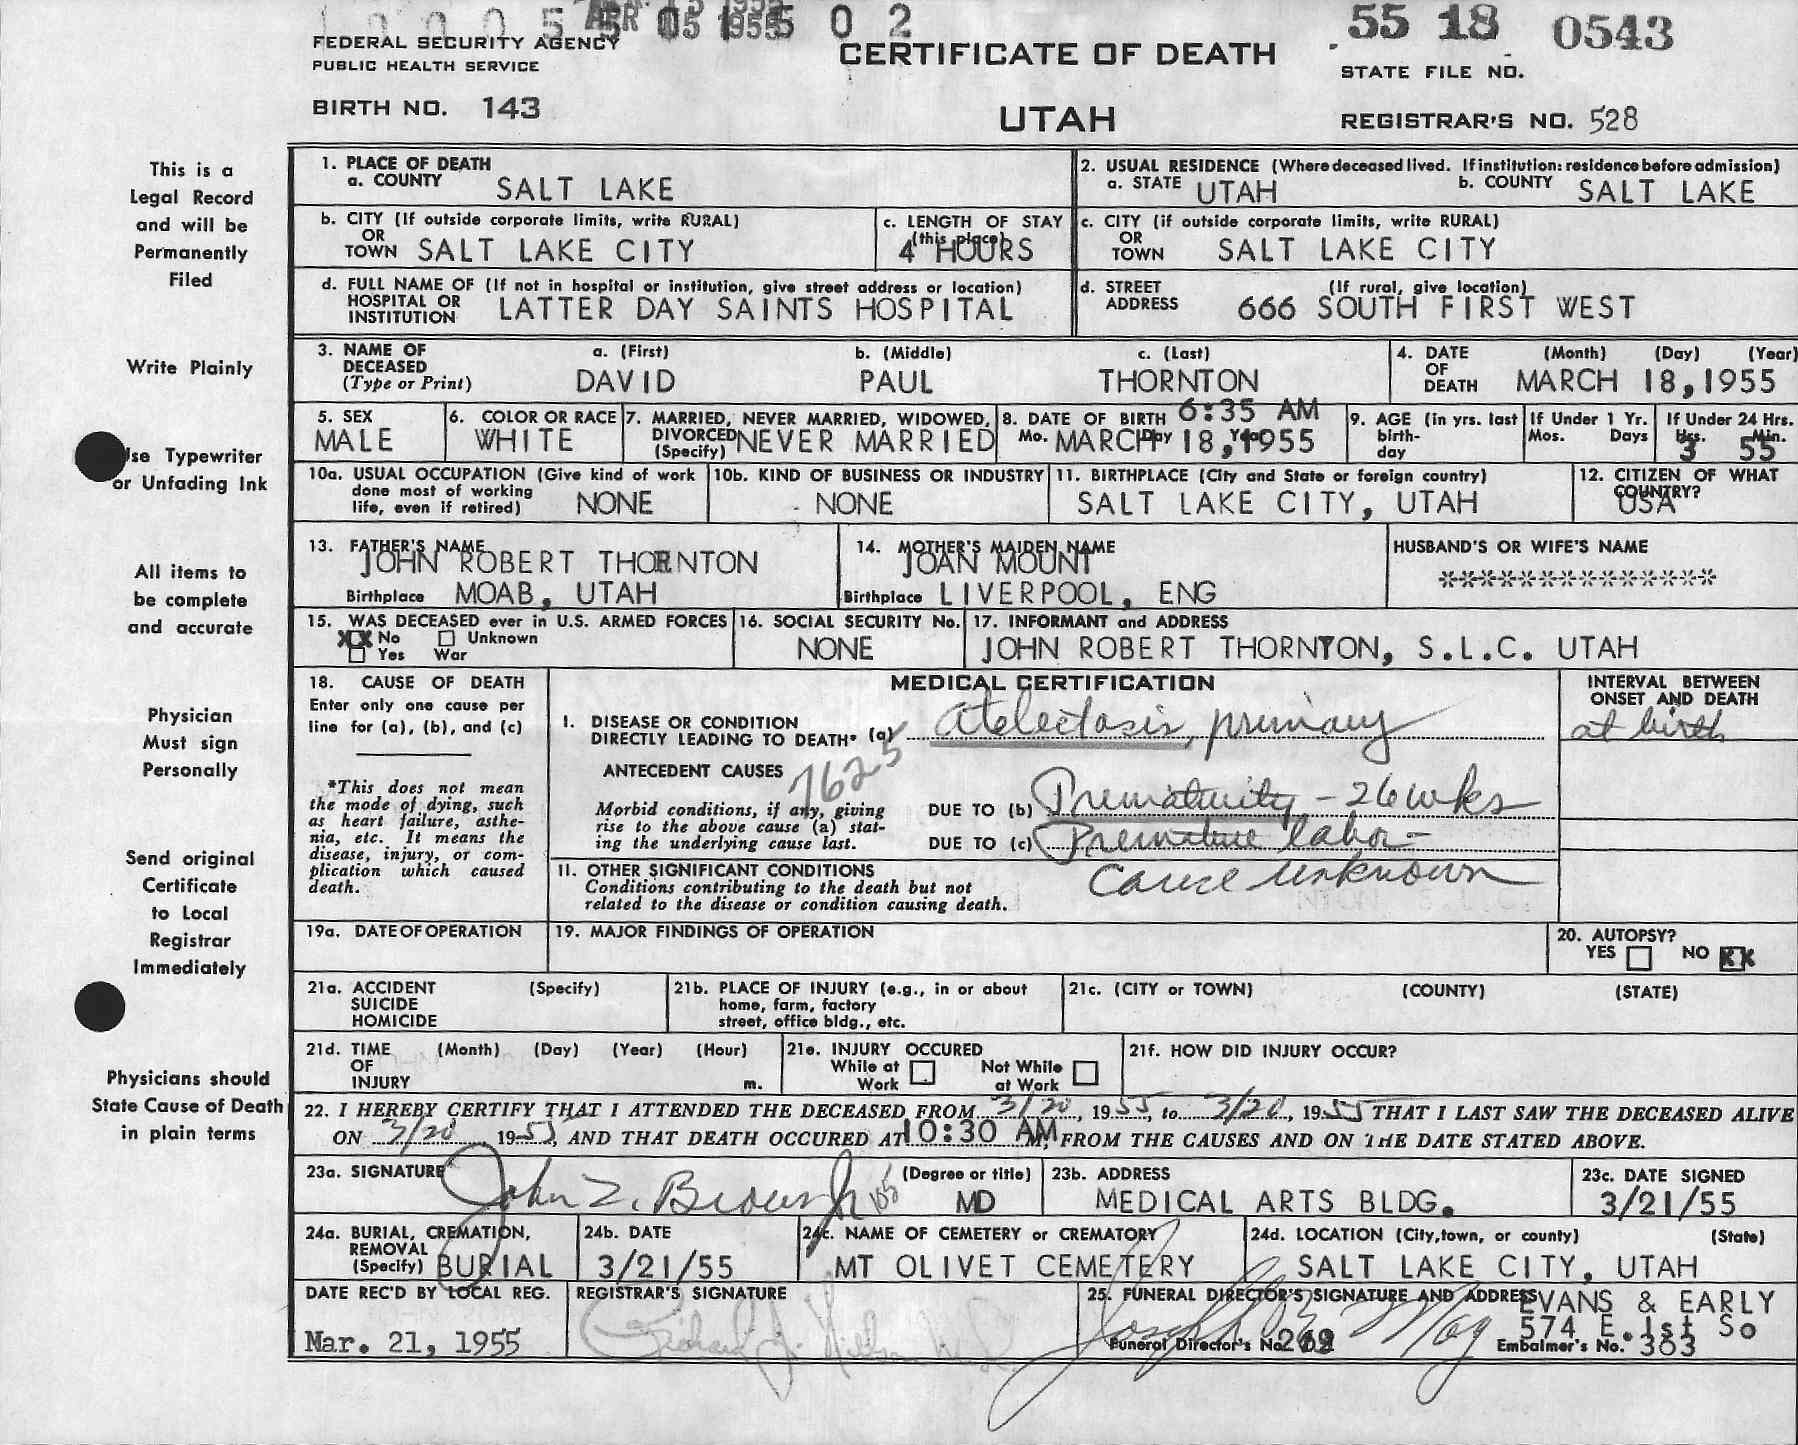 APR 05 1955
55 18 0543
FEDERAL SECURITY AGENCY
PUBLIC HEALTH SERVICE
CERTIFICATE OF DEATH
STATE FILE NO.
BIRTH NO. 143
UTAH
REGISTRAR'S NO. 528
This is a
Legal Record
and will be
Permanently
Filed
Write Plainly
Use Typewriter
or Unfading Ink
All items to
be complete
and accurate
Physician
Must sign
Personally
Send original
Certificate
to Local
Registrar
Immediately
Physicians should
State Cause of Death
in plain terms
1. PLACE OF DEATH
a. COUNTY SALT LAKE
2. USUAL RESIDENCE (Where deceased lived. If institution: residence before admission)
a. STATE UTAH b. COUNTY SALT LAKE
b. CITY (If outside corporate limits, write RURAL)
OR
TOWN SALT LAKE CITY
c. LENGTH OF STAY
(this place)
4 HOURS
c. CITY (if outside corporate limits, write RURAL)
OR
TOWN SALT LAKE CITY
d. FULL NAME OF (If not in hospital or institution, give street address or location)
HOSPITAL OR
INSTITUTION LATTER DAY SAINTS HOSPITAL
d. STREET (If rural, give location)
ADDRESS 666 SOUTH FIRST WEST
3. NAME OF a. (First) b. (Middle) c. (Last)
DECEASED
(Type or Print) DAVID PAUL THORNTON
4. DATE (Month) (Day) (Year)
OF
DEATH MARCH 18,1955
5. SEX
MALE
6. COLOR OR RACE
WHITE
7. MARRIED, NEVER MARRIED, WIDOWED,
DIVORCED NEVER MARRIED
(Specify)
8. DATE OF BIRTH 6:35 AM
Mo. MARCH Day 18, Yr. 1955
9. AGE (in yrs. last
birth-
day
If Under 1 Yr.
Mos. Days
If Under 24 Hrs.
Hrs. Min.
3 55
10a. USUAL OCCUPATION (Give kind of work
done most of working
life, even if retired) NONE
10b. KIND OF BUSINESS OR INDUSTRY
NONE
11. BIRTHPLACE (City and State or foreign country)
SALT LAKE CITY, UTAH
12. CITIZEN OF WHAT
COUNTRY?
USA
13. FATHER'S NAME
JOHN ROBERT THORNTON
Birthplace MOAB, UTAH
14. MOTHER'S MAIDEN NAME
JOAN MOUNT
Birthplace LIVERPOOL, ENG
HUSBAND'S OR WIFE'S NAME
**************
15. WAS DECEASED ever in U.S. ARMED FORCES
XX No Unknown
Yes War
16. SOCIAL SECURITY No.
NONE
17. INFORMANT and ADDRESS
JOHN ROBERT THORNTON, S.L.C. UTAH
18. CAUSE OF DEATH
Enter only one cause per
line for (a), (b), and (c)
*This does not mean
the mode of dying, such
as heart failure, asthe-
nia, etc. It means the
disease, injury, or com-
plication which caused
death.
MEDICAL CERTIFICATION
I. DISEASE OR CONDITION
DIRECTLY LEADING TO DEATH* (a) atelectasis, primary
ANTECEDENT CAUSES 762-5
Morbid conditions, if any, giving
rise to the above cause (a) stat-
ing the underlying cause last.
DUE TO (b) Prematurity - 26 wks
DUE TO (c) Premature labor -
cause unknown
INTERVAL BETWEEN
ONSET AND DEATH
at birth
11. OTHER SIGNIFICANT CONDITIONS
Conditions contributing to the death but not
related to the disease or condition causing death.
19a. DATE OF OPERATION
19. MAJOR FINDINGS OF OPERATION
20. AUTOPSY?
YES NO XX
21a. ACCIDENT (Specify)
SUICIDE
HOMICIDE
21b. PLACE OF INJURY (e.g., in or about
home, farm, factory
street, office bldg., etc.
21c. (CITY or TOWN) (COUNTY) (STATE)
21d. TIME (Month) (Day) (Year) (Hour)
OF
INJURY m.
21e. INJURY OCCURED
While at Not While
Work at Work
21f. HOW DID INJURY OCCUR?
22. I HEREBY CERTIFY THAT I ATTENDED THE DECEASED FROM 3/20, 1955, to 3/20, 1955 THAT I LAST SAW THE DECEASED ALIVE
ON 3/20 1955, AND THAT DEATH OCCURED AT 10:30 AM, FROM THE CAUSES AND ON THE DATE STATED ABOVE.
23a. SIGNATURE (Degree or title)
John Z. Brown Jr MD
23b. ADDRESS
MEDICAL ARTS BLDG.
23c. DATE SIGNED
3/21/55
24a. BURIAL, CREMATION,
REMOVAL
(Specify) BURIAL
24b. DATE
3/21/55
24c. NAME OF CEMETERY or CREMATORY
MT OLIVET CEMETERY
24d. LOCATION (City,town, or county) (State)
SALT LAKE CITY, UTAH
DATE REC'D BY LOCAL REG.
Mar. 21, 1955
REGISTRAR'S SIGNATURE
25. FUNERAL DIRECTOR'S SIGNATURE AND ADDRESS
EVANS & EARLY
574 E. 1st So
Funeral Director's No.
Embalmer's No. 363